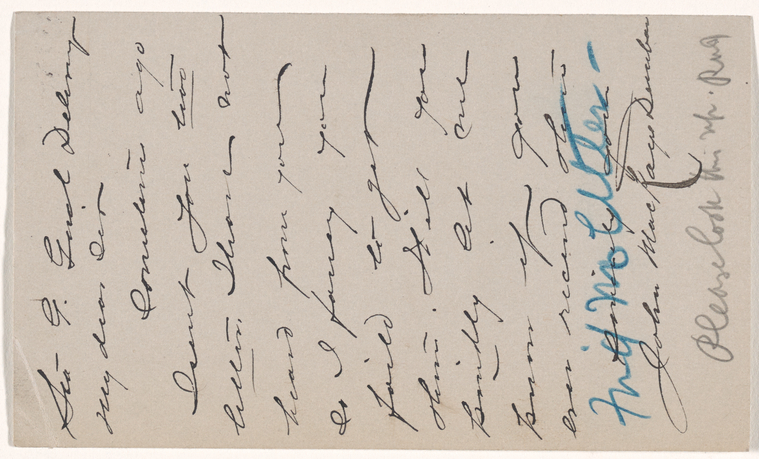 My dear Sir
Sometime ago
I sent you two
letters. I have not
heard from you
so I fancy you
faild to get
them. Will you
kindly let me
know if you
ever receivd them
No letter -
John MacKay Dunbar
Please look this up.